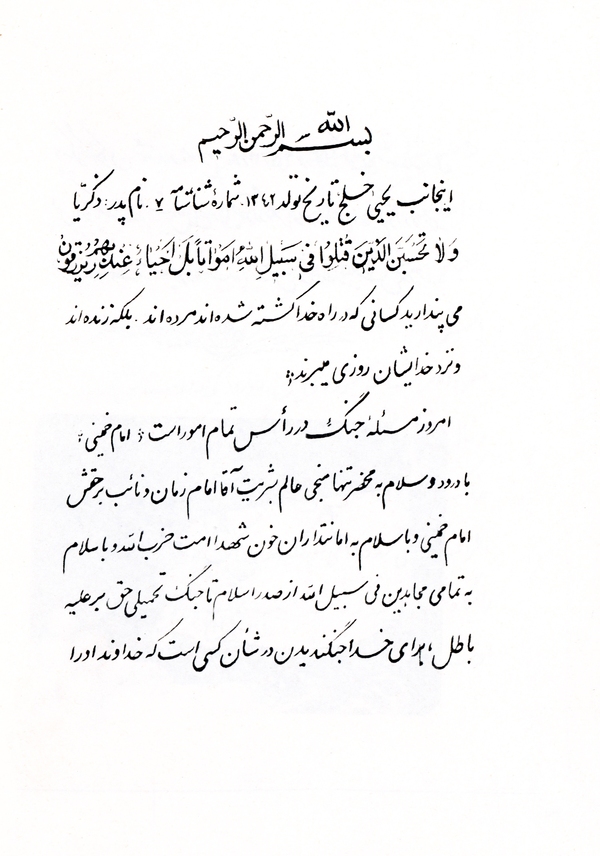 بسم الله الرحمن الرحیم
اینجانب یحیی خلج تاریخ تولد ۱۳۴۲. شمارهٔ شناسنامه ۷. نام پدر: ذکریا
وَلا تَحْسَبَنَّ الَّذينَ قُتِلُوا في سَبيلِ اللهِ اَمْواتاً بَلْ اَحْياءٌ عِنْدَ رَبِّهِمْ يُرْزَقُونَ
می پندارید کسانی که در راه خدا کشته شده اند مرده اند . بلکه زنده اند
و نزد خدایشان روزی میبرند؛
امروز مسئله جنگ در رأس تمام امور است ؛ امام خمینی ؛
با درود و سلام به محضر تنها منجی عالم بشریت آقا امام زمان و نائب برحقش
امام خمینی و با سلام به امانتداران خون شهدا امت حزب الله و با سلام
به تمامی مجاهدین فی سبیل الله از صدر اسلام تا جنگ تحمیلی حق بر علیه
باطل، برای خدا جنگیدن در شأن کسی است که خداوند او را